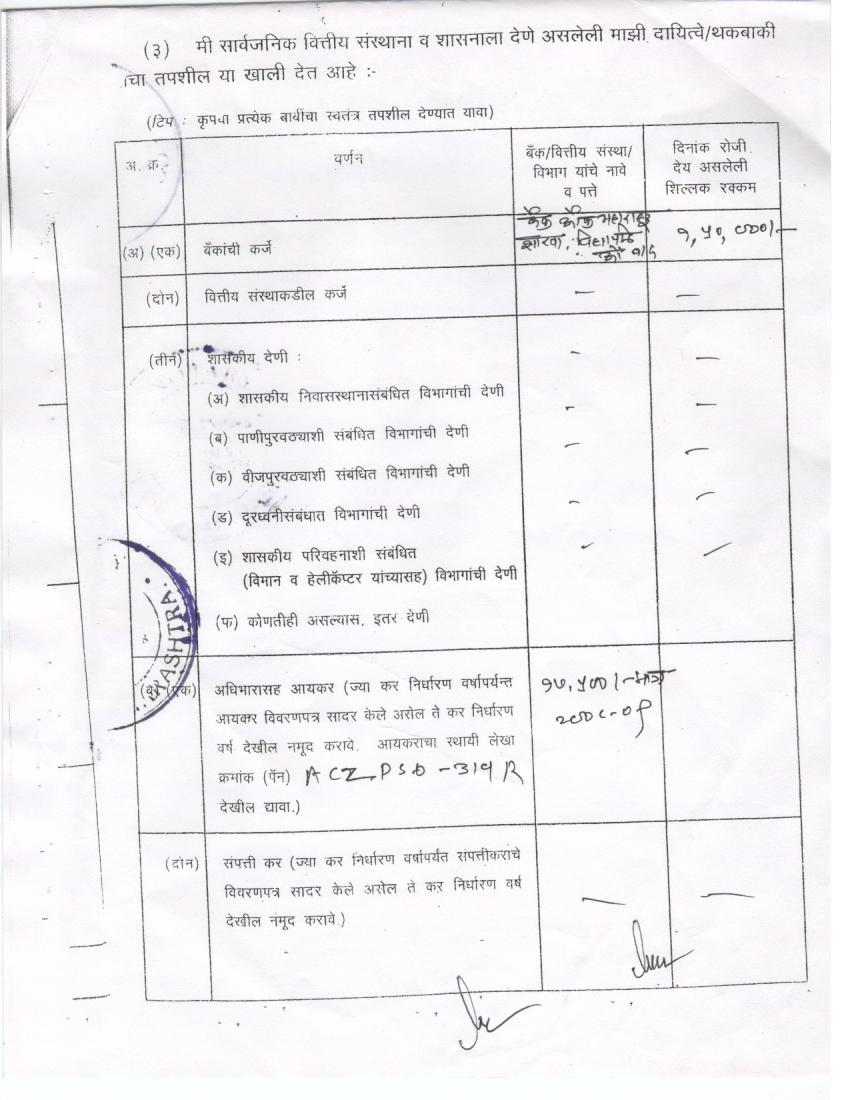 (३) मी सार्वजनिक वित्तीय संस्थाना व शासनाला देणे असलेली माझी दायित्वे/थकबाकी
चा तपशील या खाली देत आहे :-
(टिप : कृपया प्रत्येक बाबींचा स्वतंत्र तपशील देण्यात यावा)
अ. क्र. वर्णन बँक/वित्तीय संस्था/ दिनांक रोजी
विभाग यांचे नावे देय असलेली
व पत्ते शिल्लक रक्कम
बँक ऑफ महाराष्ट्र
(अ) (एक) बँकांची कर्जे शाखा, विद्यापीठ १,५०,०००/-
(दोन) वित्तीय संस्थाकडील कर्जे — —
(तीन) शासकीय देणी : - —
(अ) शासकीय निवासस्थानासंबंधित विभागांची देणी - —
(ब) पाणीपुरवठ्याशी संबंधित विभागांची देणी - —
(क) वीजपुरवठ्याशी संबंधित विभागांची देणी - -
(ड) दूरध्वनीसंबंधात विभागांची देणी
(इ) शासकीय परिवहनाशी संबंधित - —
(विमान व हेलीकॅप्टर यांच्यासह) विभागांची देणी
(फ) कोणतीही असल्यास, इतर देणी
RASHTRA
(ब) (एक) अधिभारासह आयकर (ज्या कर निर्धारण वर्षापर्यन्त
आयकर विवरणपत्र सादर केले असेल ते कर निर्धारण २००८-०९
वर्ष देखील नमूद करावे. आयकराचा स्थायी लेखा
क्रमांक (पॅन)
देखील द्यावा.)
(दोन) संपत्ती कर (ज्या कर निर्धारण वर्षापर्यंत संपत्तीकराचे
विवरणपत्र सादर केले असेल ते कर निर्धारण वर्ष — —
देखील नमूद करावे.)